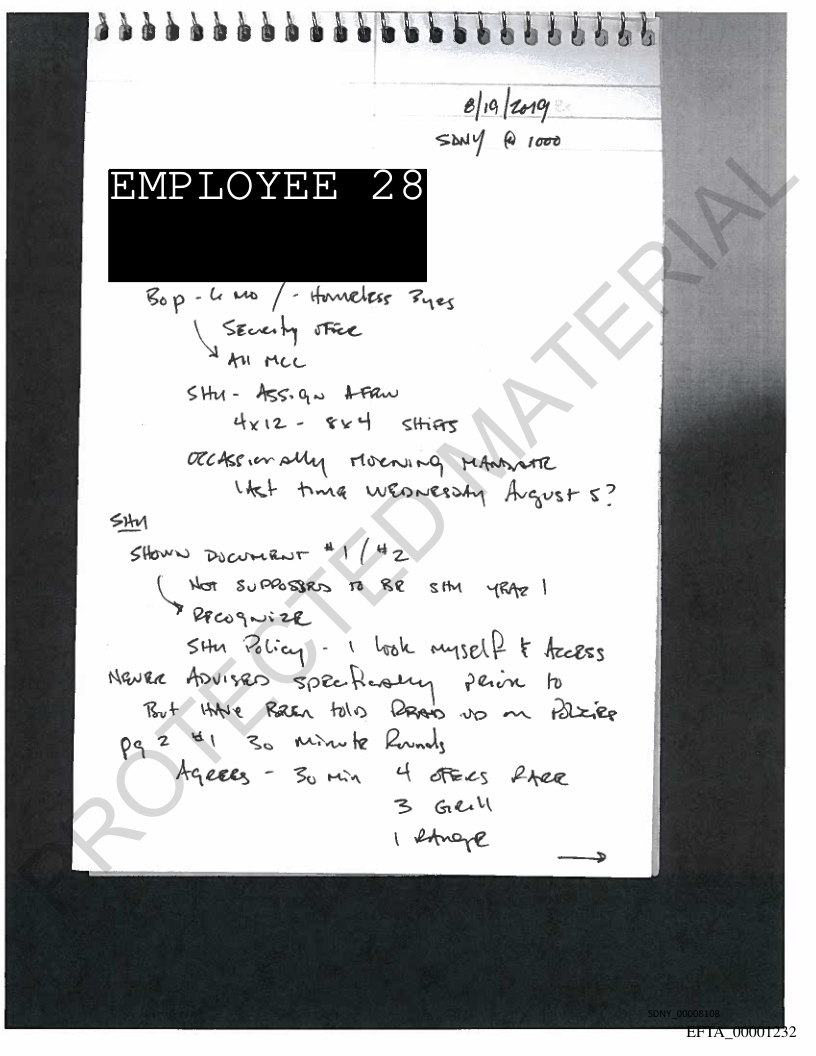 8/19/2019
SDNY @ 1000
EMPLOYEE 28
BOP - 4 mo / - Homeless 3yrs
Security office
All MCC
SHU - Assign
4x12 - 8x4 Shifts
Occassionally morning
last time Wednesday August 5?
SHU
Shown Document #1 / #2
Not suppossed to be SHU year 1
Recognize
SHU Policy - I look myself & Access
Never advised specifically prior to
But have been told read up on Policies
Pg 2 #1 30 minute Rounds
Agrees - 30 min 4 offers rare
3 Grill
1 Range
PROTECTED MATERIAL
SDNY_00008108
EFTA_00001232